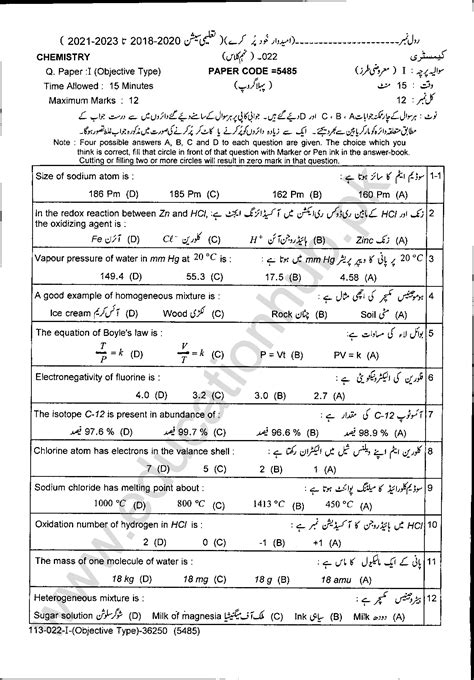 رول نمبر (امیدوار خود پُر کرے) (تعلیمی سیشن 2018-2020 تا 2021-2023)
CHEMISTRY 022- (نہم کلاس) کیمسٹری
Q. Paper : I (Objective Type) PAPER CODE =5485 سوالیہ پرچہ : I (معروضی طرز)
Time Allowed : 15 Minutes (پہلا گروپ) وقت : 15 منٹ
Maximum Marks : 12 کل نمبر : 12
Note : Four possible answers A, B, C and D to each question are given. The choice which you
think is correct, fill that circle in front of that question with Marker or Pen ink in the answer-book.
Cutting or filling two or more circles will result in zero mark in that question.
Size of sodium atom is : سوڈیم ایٹم کا سائز ہوتا ہے : 1-1
186 Pm (D) 185 Pm (C) 162 Pm (B) 160 Pm (A)
In the redox reaction between Zn and HCl, زنک اور HCl کے مابین ری ڈوکس ری ایکشن میں آکسیڈائزنگ ایجنٹ ہے : 2
the oxidizing agent is :
Fe آئرن (D) Cℓ⁻ کلورین (C) H⁺ ہائیڈروجن آئن (B) Zinc زنک (A)
Vapour pressure of water in mm Hg at 20 °C is : 20 °C پر پانی کا ویپر پریشر mm Hg میں ہوتا ہے : 3
149.4 (D) 55.3 (C) 17.5 (B) 4.58 (A)
A good example of homogeneous mixture is : ہوموجینیئس مکسچر کی اچھی مثال ہے : 4
Ice cream آئس کریم (D) Wood لکڑی (C) Rock چٹان (B) Soil مٹی (A)
The equation of Boyle's law is : بوائل لاء کی مساوات ہے : 5
T/P = k (D) V/T = k (C) P = Vt (B) PV = k (A)
Electronegativity of fluorine is : فلورین کی الیکٹرونیگیٹویٹی ہے : 6
4.0 (D) 3.2 (C) 3.0 (B) 2.7 (A)
The isotope C-12 is present in abundance of : آئسوٹوپ C-12 کی مقدار ہے : 7
97.6 % فیصد (D) 99.7 % فیصد (C) 96.6 % فیصد (B) 98.9 % فیصد (A)
Chlorine atom has electrons in the valance shell : کلورین ایٹم اپنے ویلنس شیل میں الیکٹران رکھتا ہے : 8
7 (D) 5 (C) 2 (B) 1 (A)
Sodium chloride has melting point about : سوڈیم کلورائیڈ کا میلٹنگ پوائنٹ ہوتا ہے : 9
1000 °C (D) 800 °C (C) 1413 °C (B) 450 °C (A)
Oxidation number of hydrogen in HCl is : HCl میں ہائیڈروجن کا آکسیڈیشن نمبر ہے : 10
2 (D) 0 (C) -1 (B) +1 (A)
The mass of one molecule of water is : پانی کے ایک مالیکیول کا ماس ہے : 11
18 kg (D) 18 mg (C) 18 g (B) 18 amu (A)
Heterogeneous mixture is : ہیٹروجینیئس مکسچر ہے : 12
Sugar solution شوگر سلوشن (D) Milk of magnesia ملک آف میگنیشیا (C) Ink سیاہی (B) Milk دودھ (A)
113-022-I-(Objective Type)-36250 (5485)
www.educationhub.pk